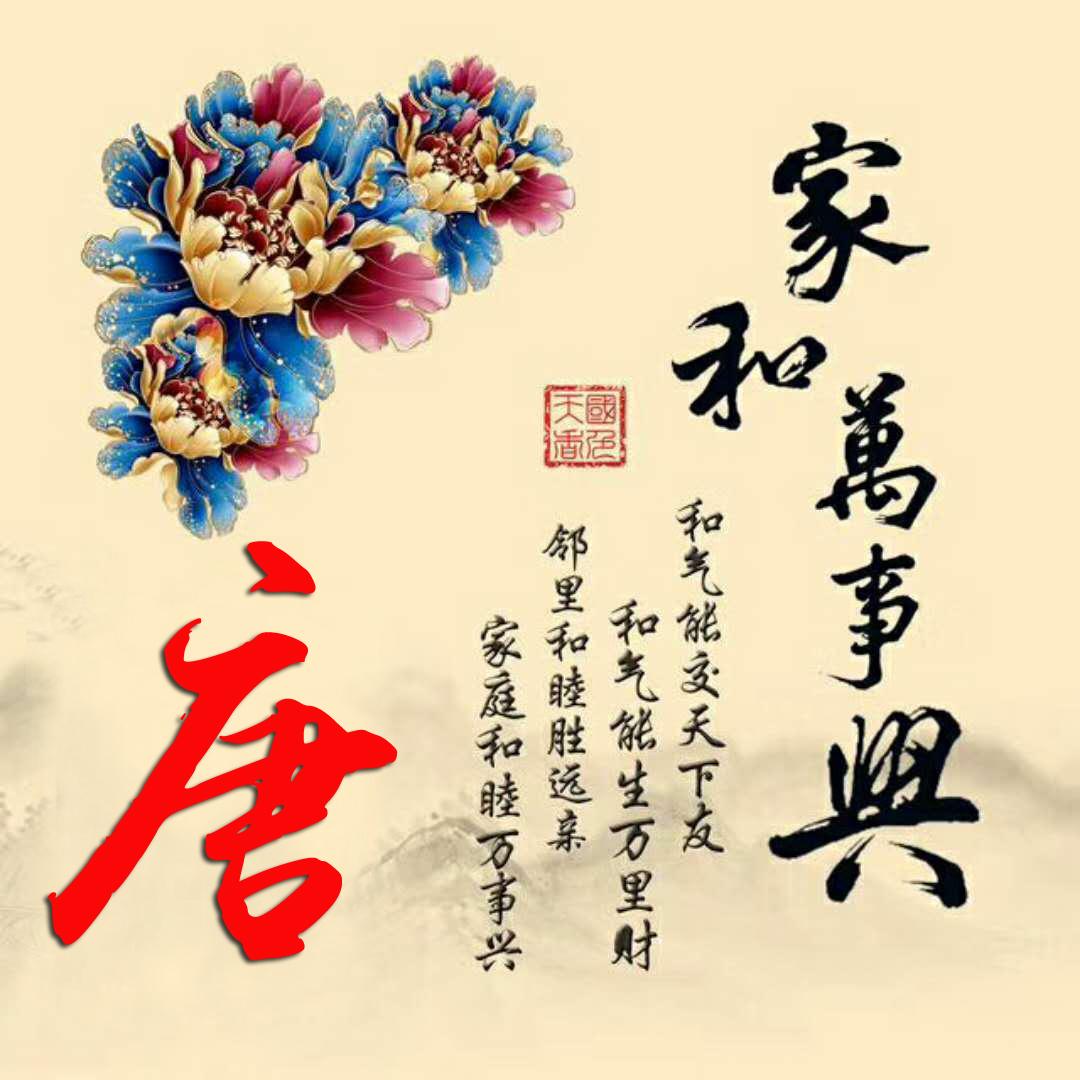 家和萬事興
和气能交天下友
和气能生万里财
邻里和睦胜远亲
家庭和睦万事兴
國色天香
唐